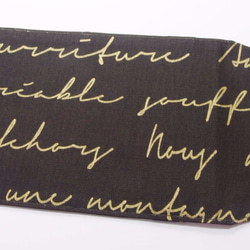 urriture
riable souff
Nous
une montagn